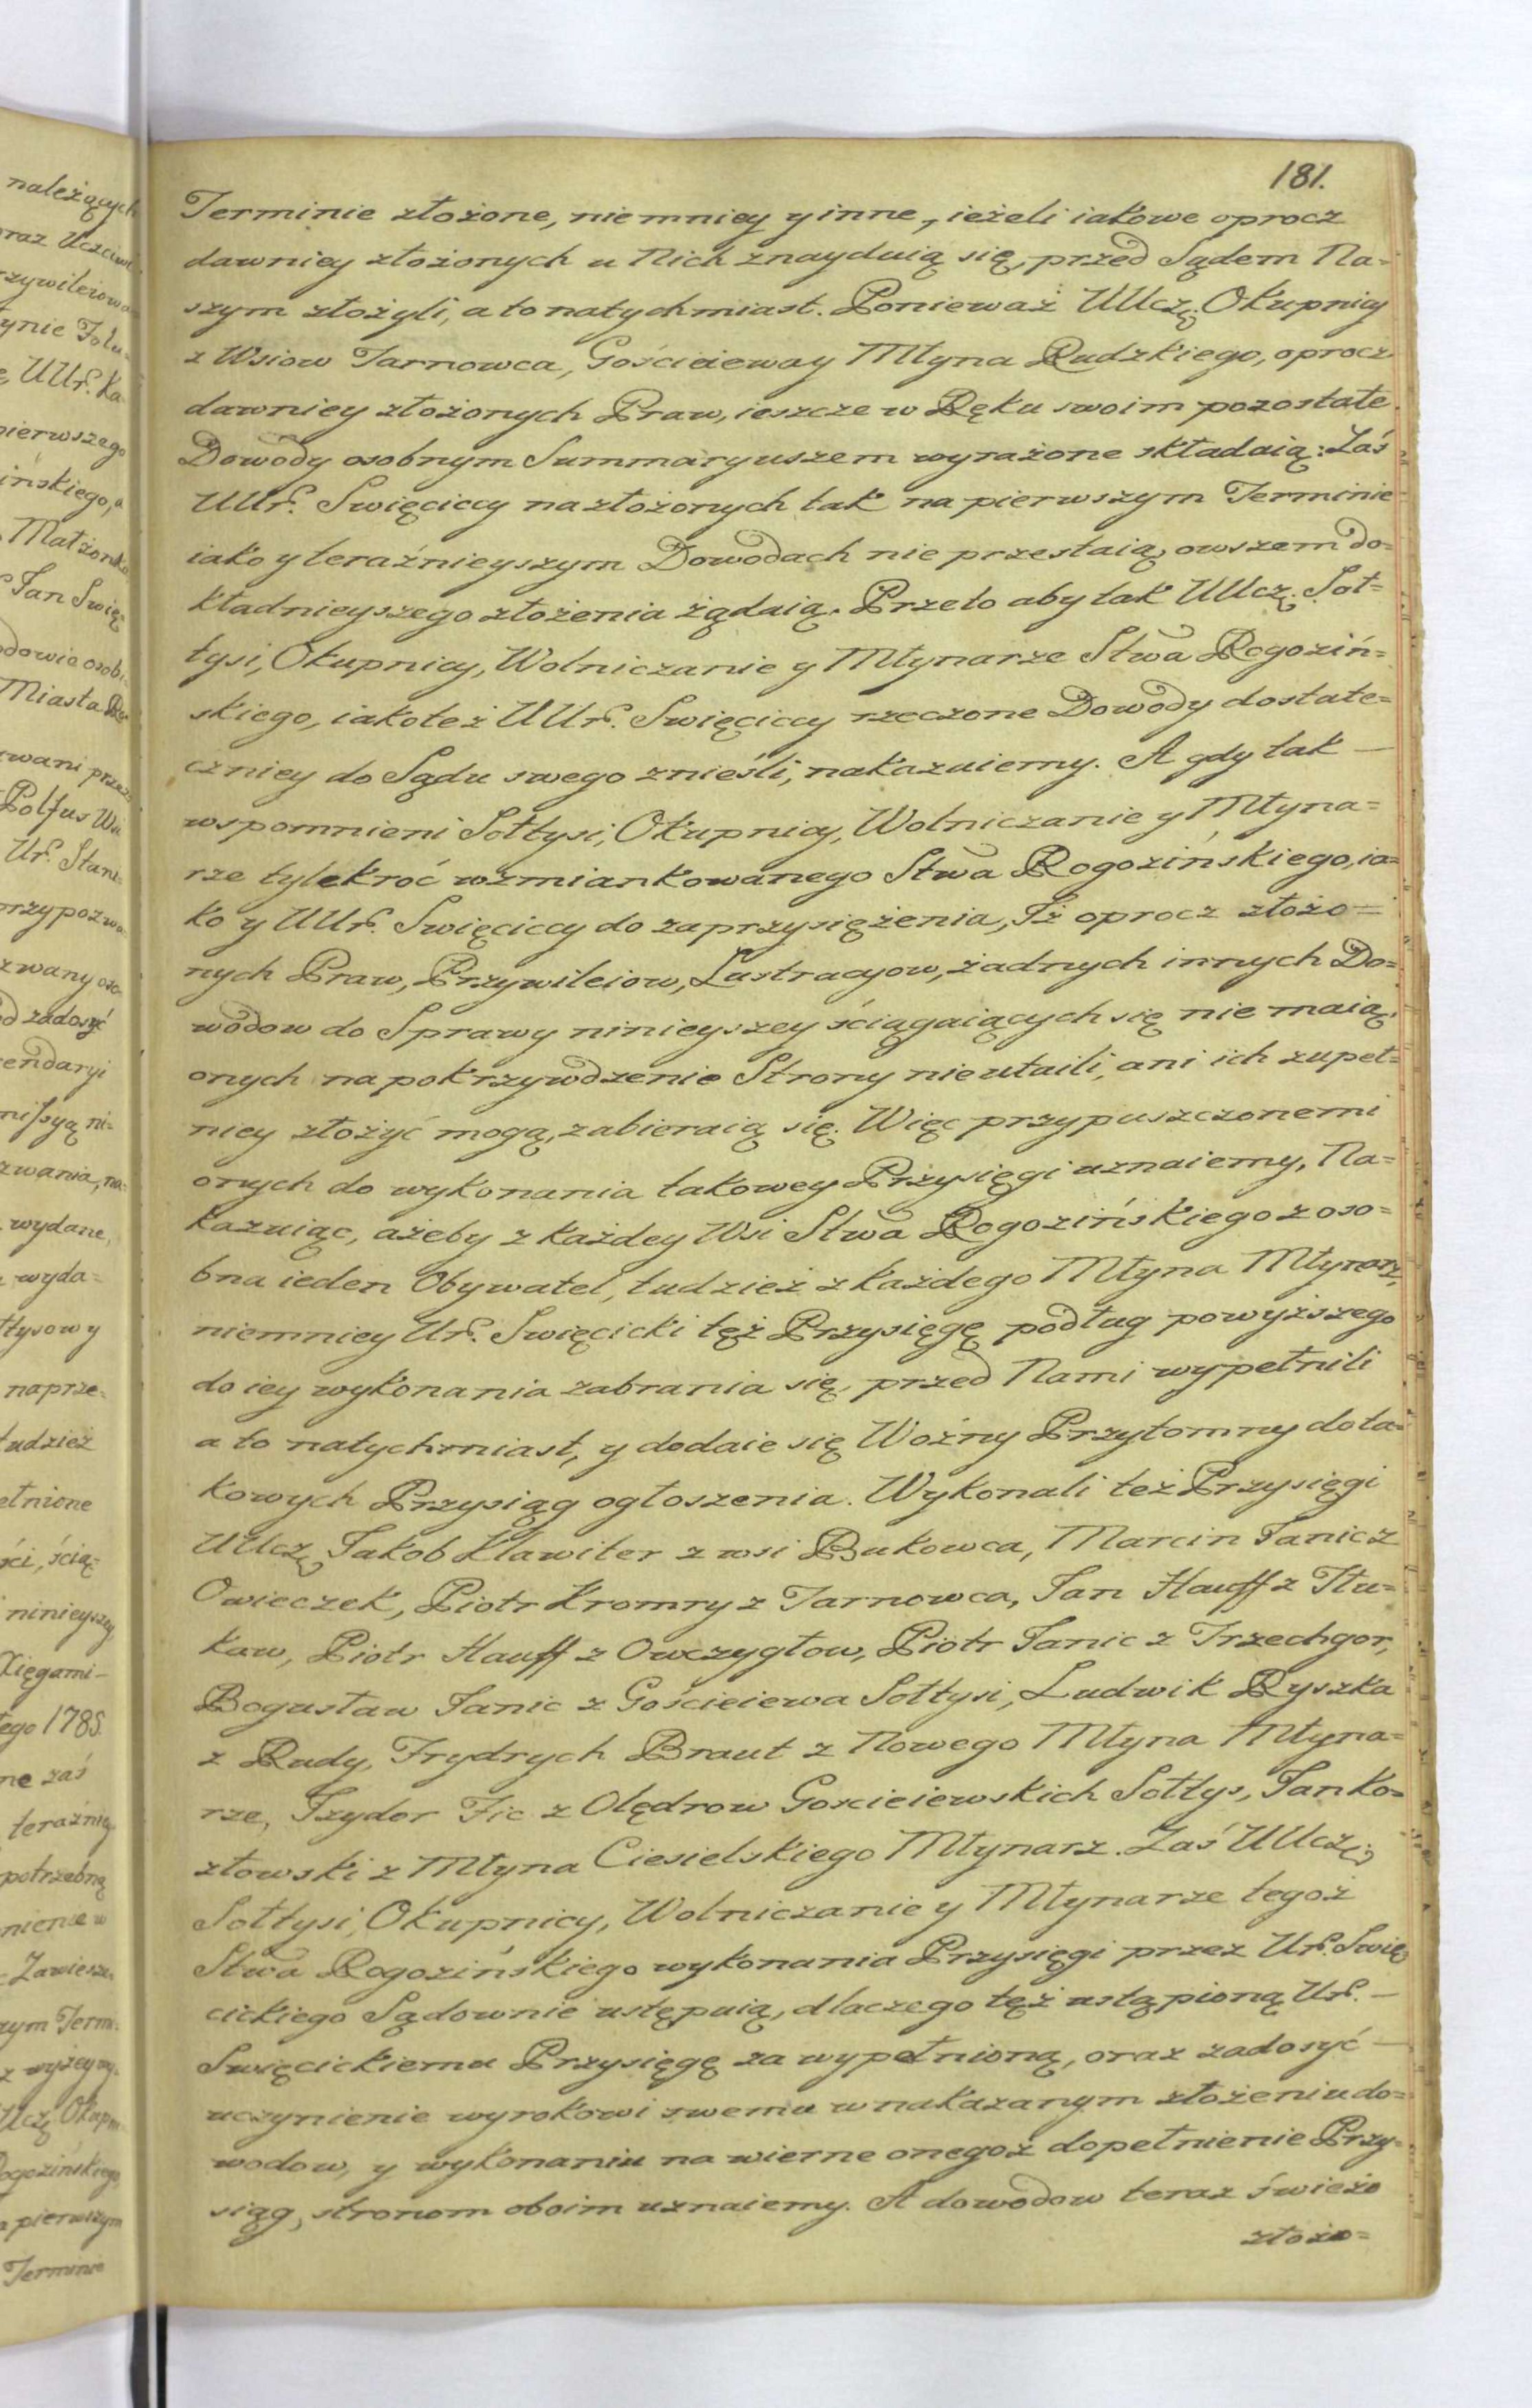 181.
Terminie złożone, niemniey y inne, ieżeli iakowe oprocz
dawniey złożonych u Nich znayduią się, przed Sądem Na=
szym złożyli, a to natychmiast. Ponieważ UUczę. Okupnicy
z Wsiow Tarnowca, Gościeiewa y Młyna Rudzkiego, oprocz
dawniey złożonych Praw, ieszcze w Ręku swoim pozostałe
Dowody osobnym Summaryuszem wyrażone składaią: Zaś
UUr. Swięciccy na złożonych tak na pierwszym Terminie
iako y teraźnieyszym Dowodach nie przestaią, owszem do=
kładnieyszego złożenia żądaią. Przeto aby tak UUcz. Soł=
tysi, Okupnicy, Wolniczanie y Młynarze Stwa Rogoziń=
skiego, iakoteż UUr. Swięciccy rzeczone Dowody dostate=
czniey do Sądu swego znieśli, nakazuiemy. A gdy tak —
wspomnieni Sołtysi, Okupnicy, Wolniczanie y Młyna=
rze tylekroć wzmiankowanego Stwa Rogozińskiego, ia=
ko y UUr. Swięciccy do zaprzysiężenia, Iż oprocz złożo=
nych Praw, Przywileiow, Lustracyow, żadnych innych Do=
wodow do Sprawy ninieyszey ściągaiących się nie maią,
onych na pokrzywdzenie Strony nie utaili, ani ich zupeł=
niey złożyć mogą, zabieraią się. Więc przypuszczonemi
onych do wykonania takowey Przysięgi uznaiemy, Na=
kazuiąc, ażeby z każdey Wsi Stwa Rogozińskiego z oso=
bna ieden Obywatel, tudzież z każdego Młyna Młynarz,
niemniey Ur. Swięcicki też Przysięgę podług powyższego
do iey wykonania zabrania się, przed Nami wypełnili
a to natychmiast, y dodaie się Woźny Przytomny do ta=
kowych Przysiąg ogłoszenia. Wykonali też Przysięgi
UUczę Jakob Klawiter z wsi Bukowca, Marcin Janic z
Owieczek, Piotr Kromry z Tarnowca, Jan Hauff z Tłu=
kaw, Piotr Hauff z Owczygłow, Piotr Janic z Trzechgor,
Bogusław Janic z Gościeiewa Sołtysi, Ludwik Ryszka
z Rudy, Frydrych Braut z Nowego Młyna Młyna=
rze, Izydor Fic z Olędrow Gościeiewskich Sołtys, Jan Ko=
złowski z Młyna Ciesielskiego Młynarz. Zaś UUczę
Sołtysi, Okupnicy, Wolniczanie y Młynarze tegoż
Stwa Rogozińskiego wykonania Przysięgi przez Ur. Swię
cickiego Sądownie ustępuią, dlaczego też ustąpioną Ur. —
Swięcickiemu Przysięgę za wypełnioną, oraz zadosyć —
uczynienie wyrokowi swemu w nakazanym złożeniu do=
wodow, y wykonaniu na wierne onegoż dopełnienie Przy=
siąg, stronom oboim uznaiemy. A dowodow teraz świeżo
złożo=